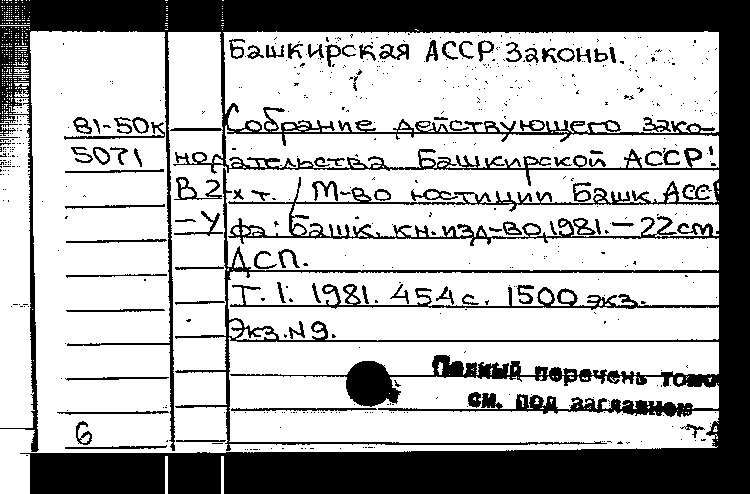 Башкирская АССР. Законы.
81-50к Собрание действующего зако-
5071 нодательства Башкирской АССР:
В 2-х т. / М-во юстиции Башк. АССР
- Уфа: Башк. кн. изд-во, 1981. - 22 см.
ДСП.
Т. 1. 1981. 454 с. 1500 экз.
Экз. N 9.
Полный перечень томо
см. под заглавием
6